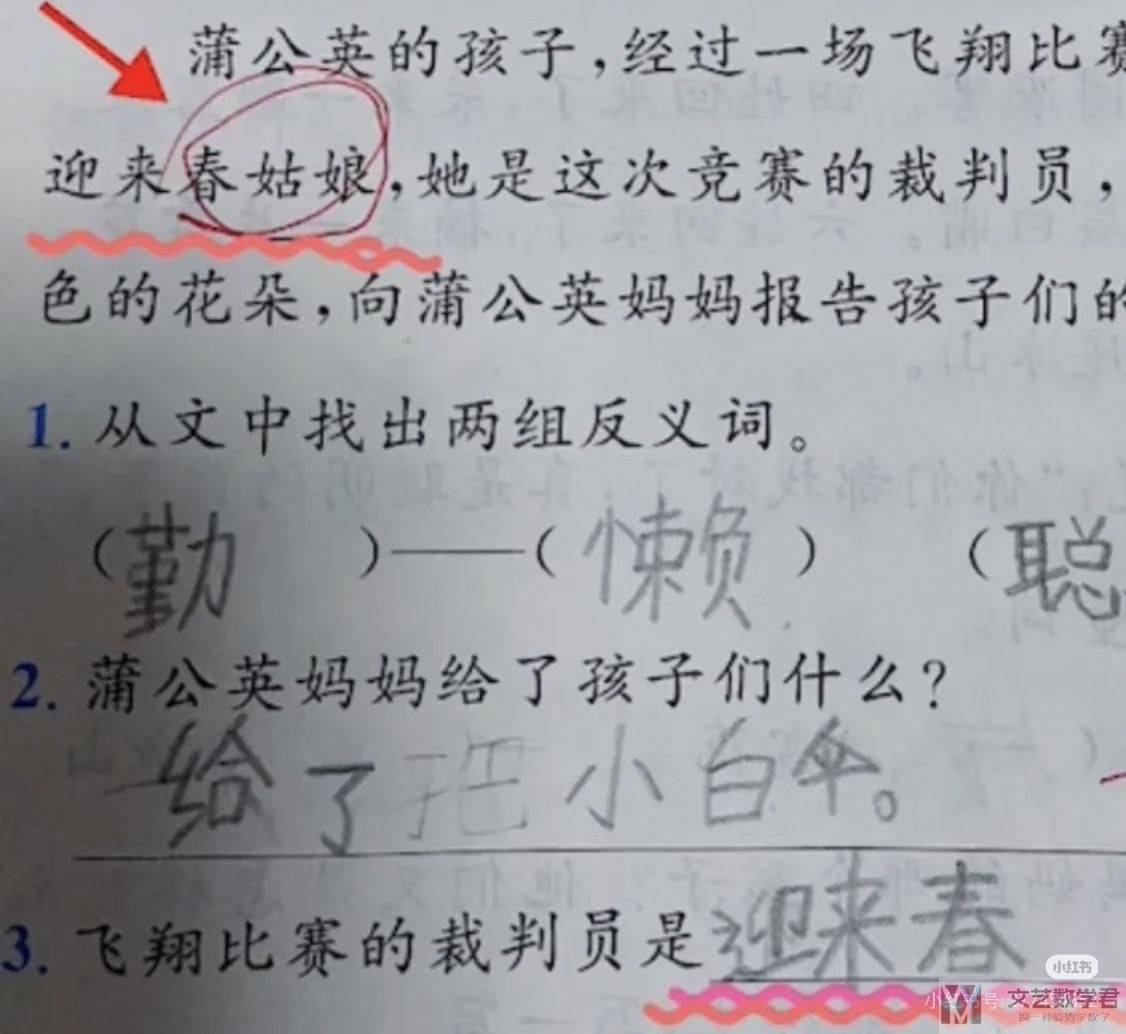 蒲公英的孩子，经过一场飞翔比赛
迎来春姑娘，她是这次竞赛的裁判员，
色的花朵，向蒲公英妈妈报告孩子们的
1. 从文中找出两组反义词。
（勤）——（懒）（聪
2. 蒲公英妈妈给了孩子们什么？
给了把小白伞。
3. 飞翔比赛的裁判员是迎来春
小红书
小红书号：
文艺数学君
换一种姿势学数学